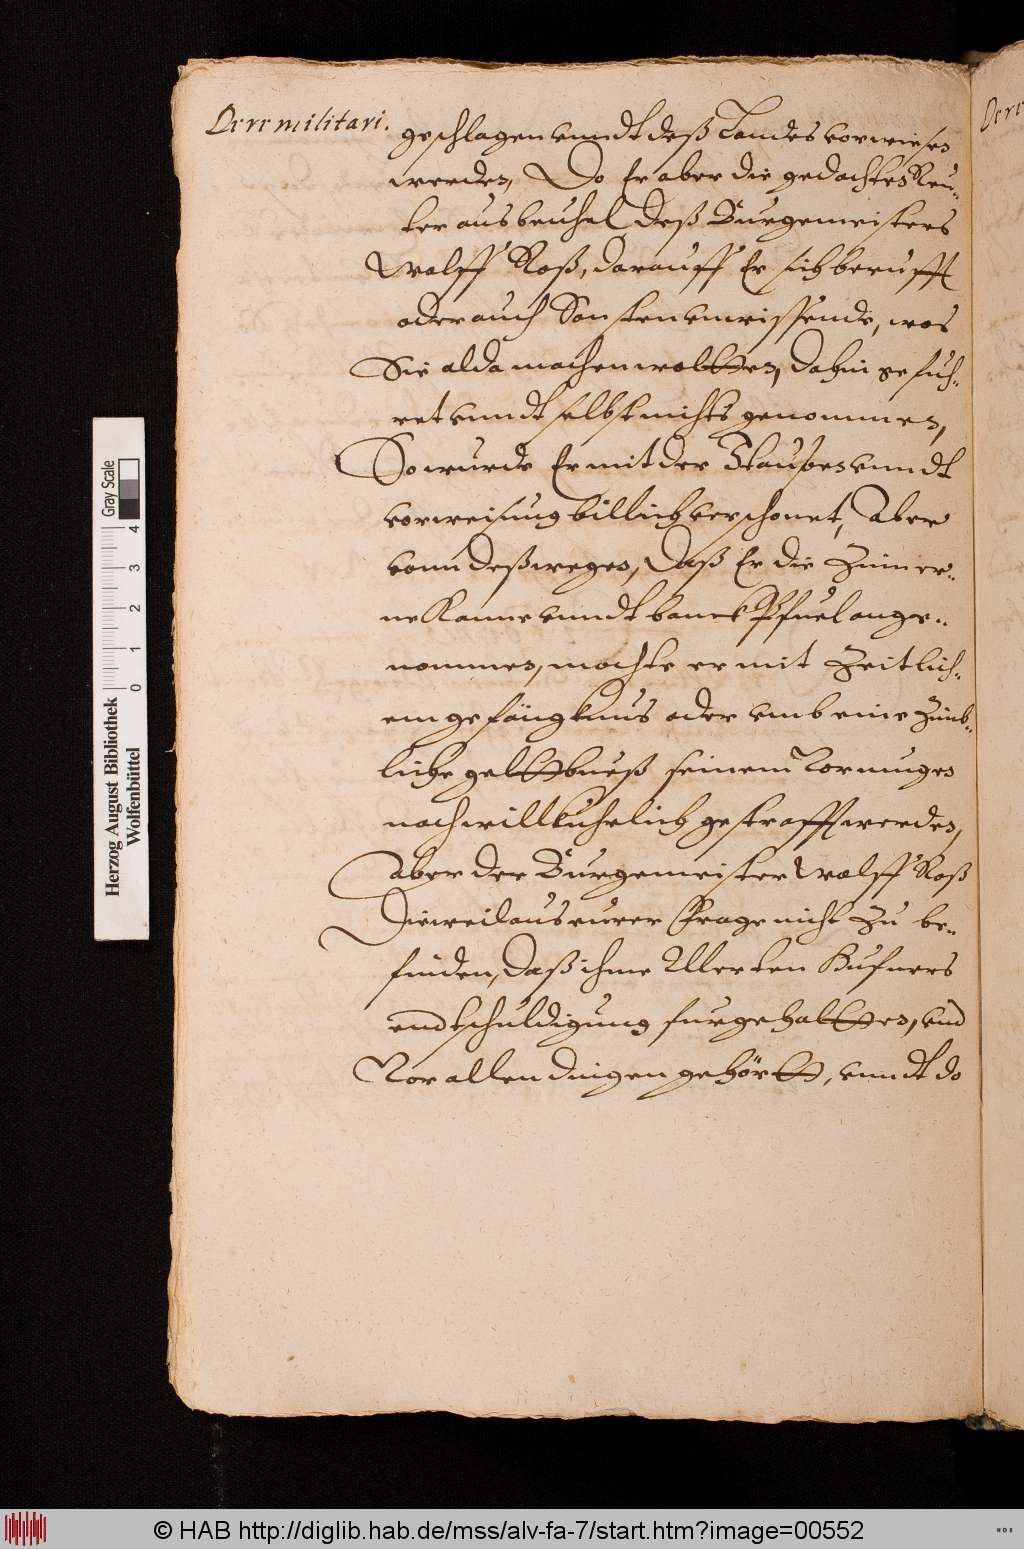 De re militari.
geschlagen vnndt deß Landes vorwiesen
werden, Do Er aber die gedachten Reu-
ter aus beuhel deß Burgemeisters
Wolff Roß, darauff Er sich berufft
oder auch Sonsten vnwissende, was
Sie alda machen woltten, dahin gefuh-
ret vnndt selbst nichts genommen,
So wurde Er mit der Staupen vnndt
vorweisung billich verschonet, Aber
vonn deßwegen, daß Er die Zinner-
ne Kanne vnndt banck Pfuel ange-
nommen, mochte er mit Zeitlich-
em gefängknus oder vmb eine Zimb-
liche geltbueß seinem Vormugen
nach willkuhrlich gestrafft werden,
Aber der Burgemeister Wolff Roß
Dieweil aus eurer Frage nicht Zu be-
finden, daß ihme Merten Hufners
endtschuldigung furgehaltten, vnd
Vor allen dingen gehörtt, vnndt do
De re
Gray Scale
0 1 2 3 4
Herzog August Bibliothek
Wolfenbüttel
© HAB http://diglib.hab.de/mss/alv-fa-7/start.htm?image=00552